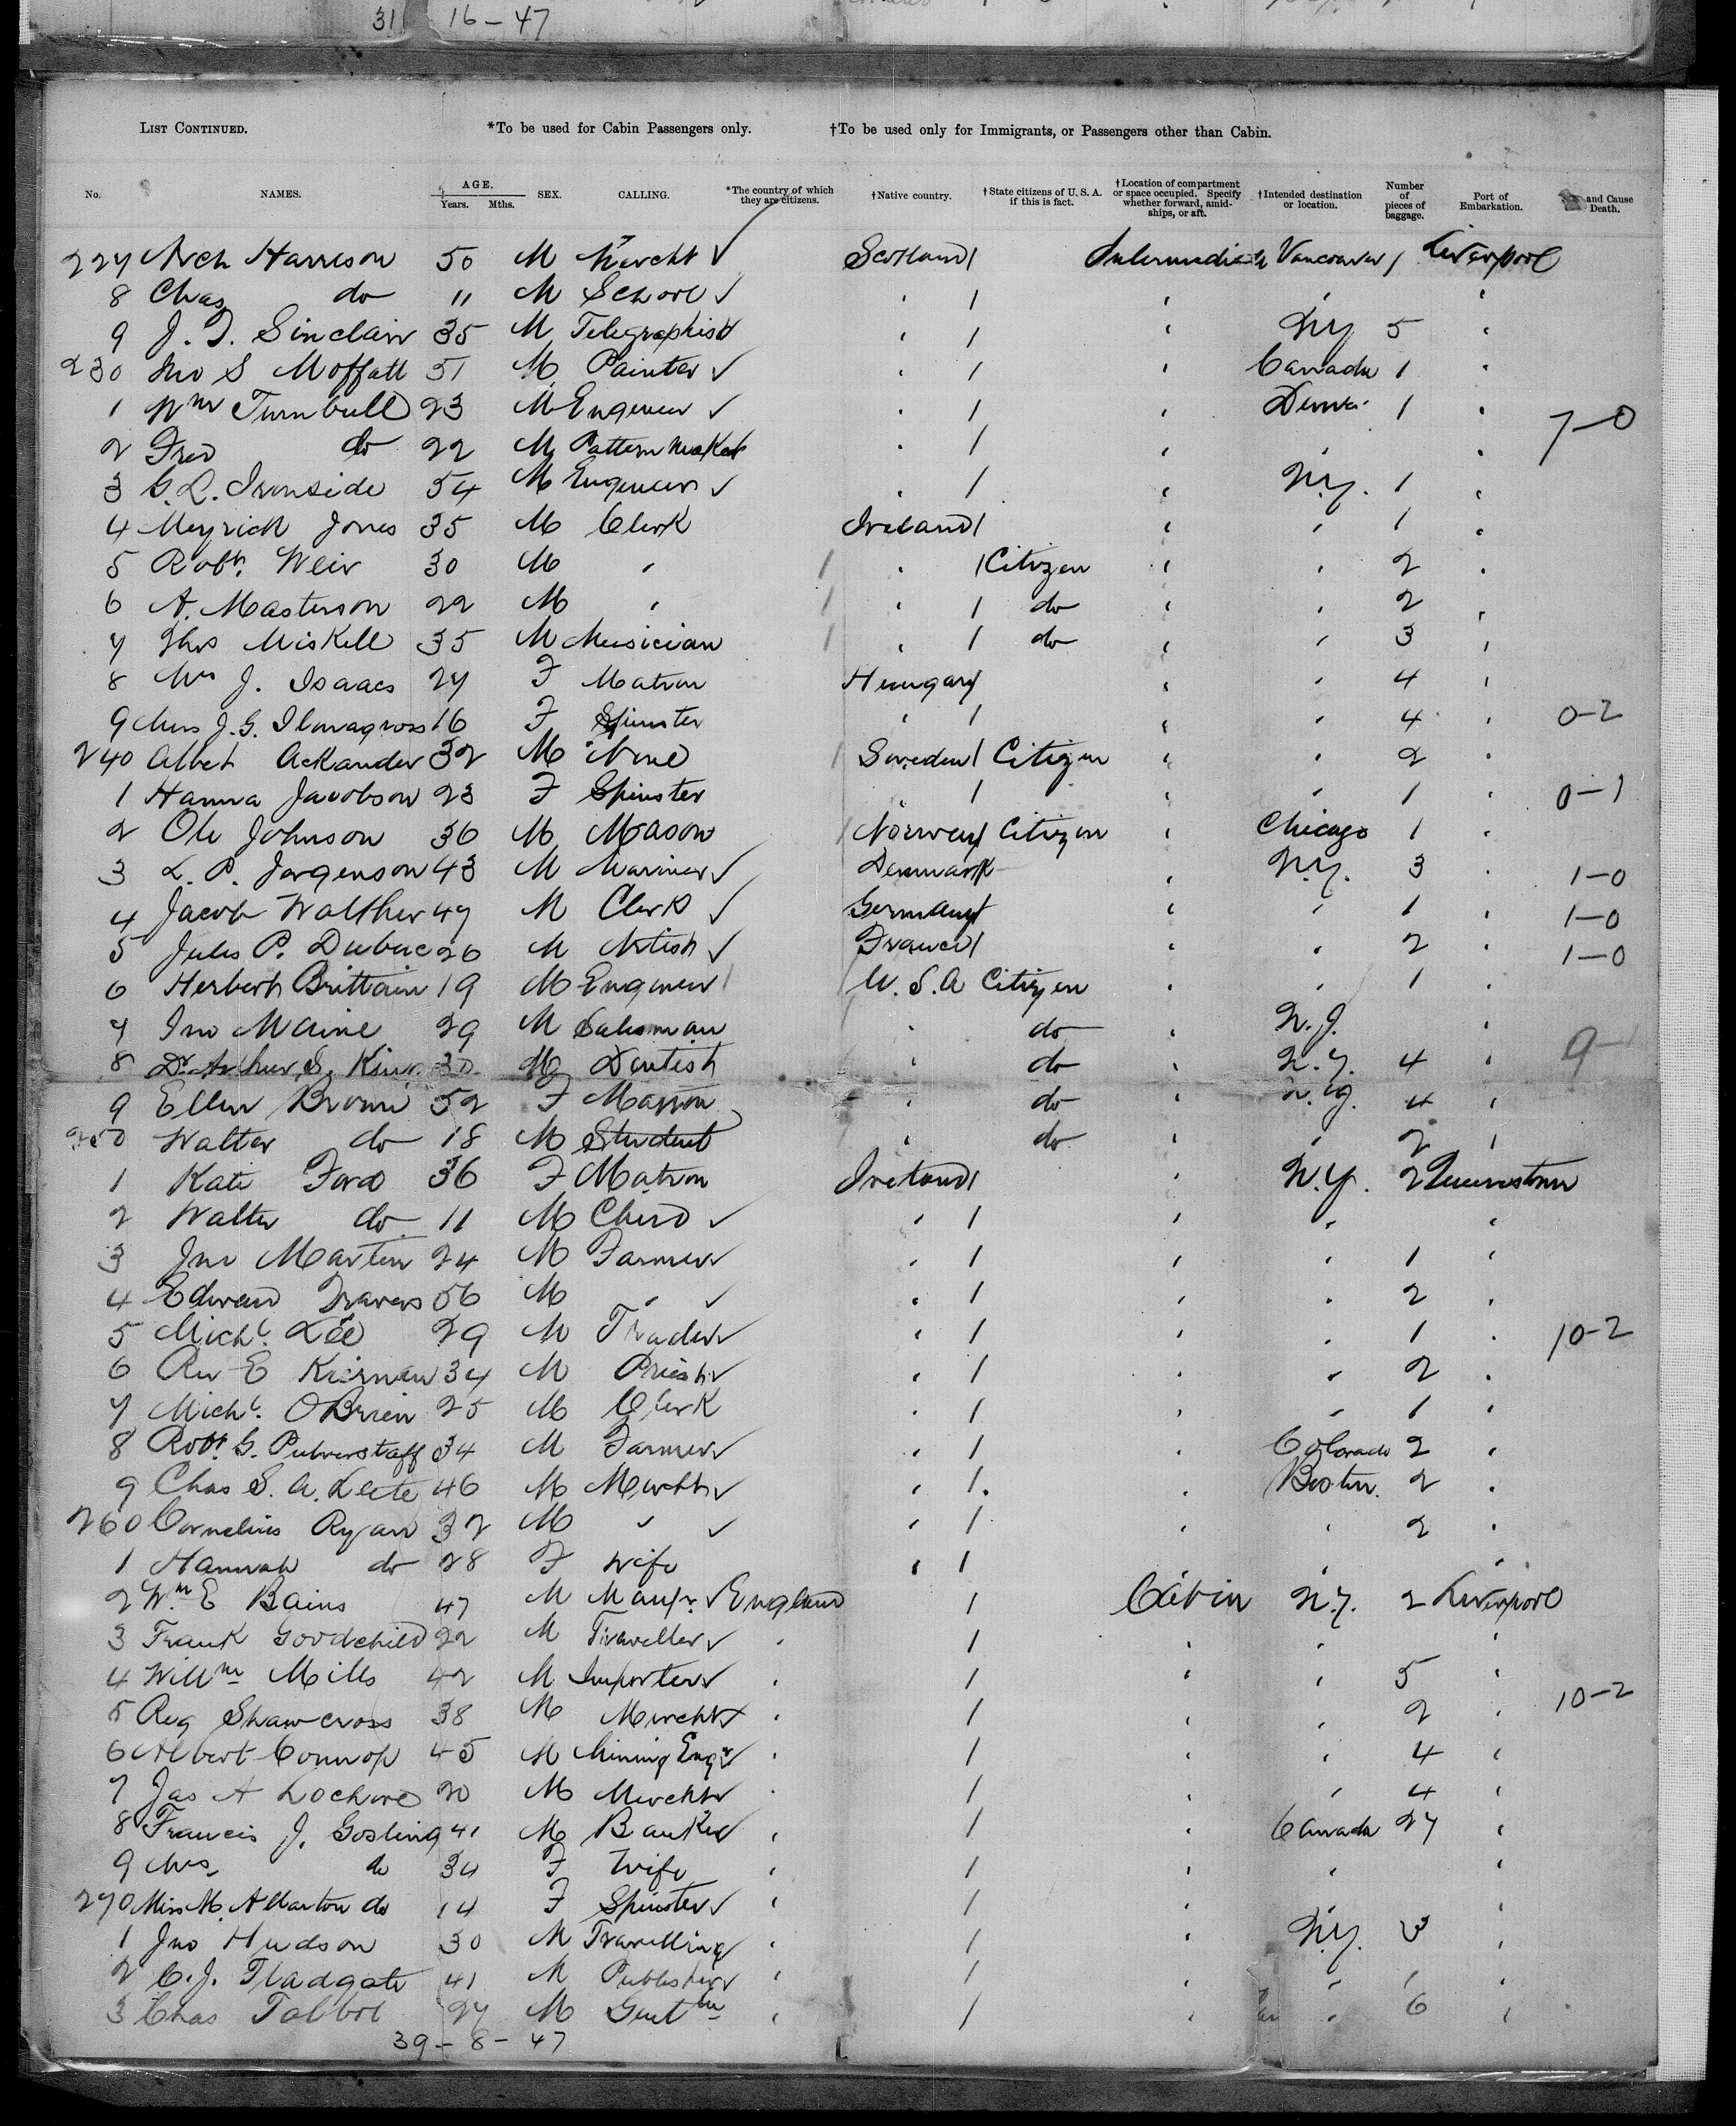 31 16-47
LIST CONTINUED. *To be used for Cabin Passengers only. †To be used only for Immigrants, or Passengers other than Cabin.
No. NAMES. AGE. Years. Mths. SEX. CALLING. *The country of which they are citizens. †Native country. †State citizens of U. S. A. if this is fact. †Location of compartment or space occupied. Specify whether forward, amidships, or aft. †Intended destination or location. Number of pieces of baggage. Port of Embarkation. and Cause Death.
227 Arch Harrison 50 M Mercht ✓ Scotland / Intermediate Vancouver 1 Liverpool
8 Chas do 11 M School ✓ " / " " "
9 J. T. Sinclair 35 M Telegraphist " / " N.Y. 5 "
230 Jno S Moffatt 51 M Painter ✓ " / " Canada 1 "
1 Wm Turnbull 23 M Engineer ✓ " / " 1 " 7-0
2 Fred do 22 M Pattern Maker " / " " "
3 G. L. Ironside 54 M Engineer ✓ " / " N.Y. 1 "
4 Meyrick Jones 35 M Clerk Ireland / " " 1 "
5 Robt. Weir 30 M " / " / Citizen " " 2 "
6 A. Masterson 22 M " / " / do " " 2 "
7 Thos Miskell 35 M Musician / " / do " " 3 "
8 Mrs J. Isaacs 27 F Matron Hungary / " " 4 "
9 J. G. 16 F Spinster " / " " 4 " 0-2
240 Albert Ackander 32 M None / Sweden / Citizen " " 2 "
1 Hanna Jacobson 23 F Spinster / " " 1 " 0-1
2 Ole Johnson 36 M Mason / Norway / Citizen " Chicago 1 "
3 L. P. Jorgenson 43 M Mariner ✓ Denmark " N.Y. 3 " 1-0
4 Jacob Walther 47 M Clerk ✓ Germany / " " 1 " 1-0
5 Jules P. Dubuc 26 M Artist ✓ France / " " 2 " 1-0
6 Herbert Brittain 19 M Engineer / U. S. A Citizen " " 1 "
7 Jno Maine 29 M Salesman " do " N.J.
8 Dr Arthur S. King 30 M Dentist " do " N.Y. 4 " 9-
9 Ellen Brown 52 F Matron " do " N.Y. 4 "
250 Walter do 18 M Student " do " 2 "
1 Kate Ford 36 F Matron Ireland / " N.Y. 2 Queenstown
2 Walter do 11 M Child ✓ " / " " "
3 Jno Martin 24 M Farmer ✓ " / " " 1 "
4 Edward Travers 56 M " ✓ " / " " 2 "
5 Michl. Lee 29 M Trader ✓ " / " " 1 " 10-2
6 Rev E Kiernan 34 M Priest ✓ " / " " 2 "
7 Michl. OBrien 25 M Clerk " / " " 1 "
8 Robt. G. 34 M Farmer ✓ " / " Colorado 2 "
9 Chas S. A. Leete 46 M Mercht ✓ " / " Boston 2 "
260 Cornelius Ryan 32 M " ✓ " / " " 2 "
1 Hannah do 28 F Wife " / " "
2 Wm E Bains 47 M Manfr. ✓ England / Cabin N.Y. 2 Liverpool
3 Frank Goodchild 22 M Traveller ✓ " / " " "
4 Willm Mills 42 M Importer ✓ " / " " 5 "
5 Reg Shawcross 38 M Mercht " / " " 2 " 10-2
6 Albert Connop 45 M Mining Engr ✓ " / " " 4 "
7 Jas A 20 M Mercht ✓ " / " " 4 "
8 Francis J. Gosling 41 M Banker " / " Canada 27 "
9 Mrs do 34 F Wife " / " " "
270 Miss M. Allarton do 14 F Spinster ✓ " / " " "
1 Jno Hudson 30 M Travelling " / " N.Y. 3 "
2 C. J. Thadgate 41 M Publisher ✓ " / " " 1 "
3 Chas Talbot 27 M Gentlm " / " " 6 "
39-8-47